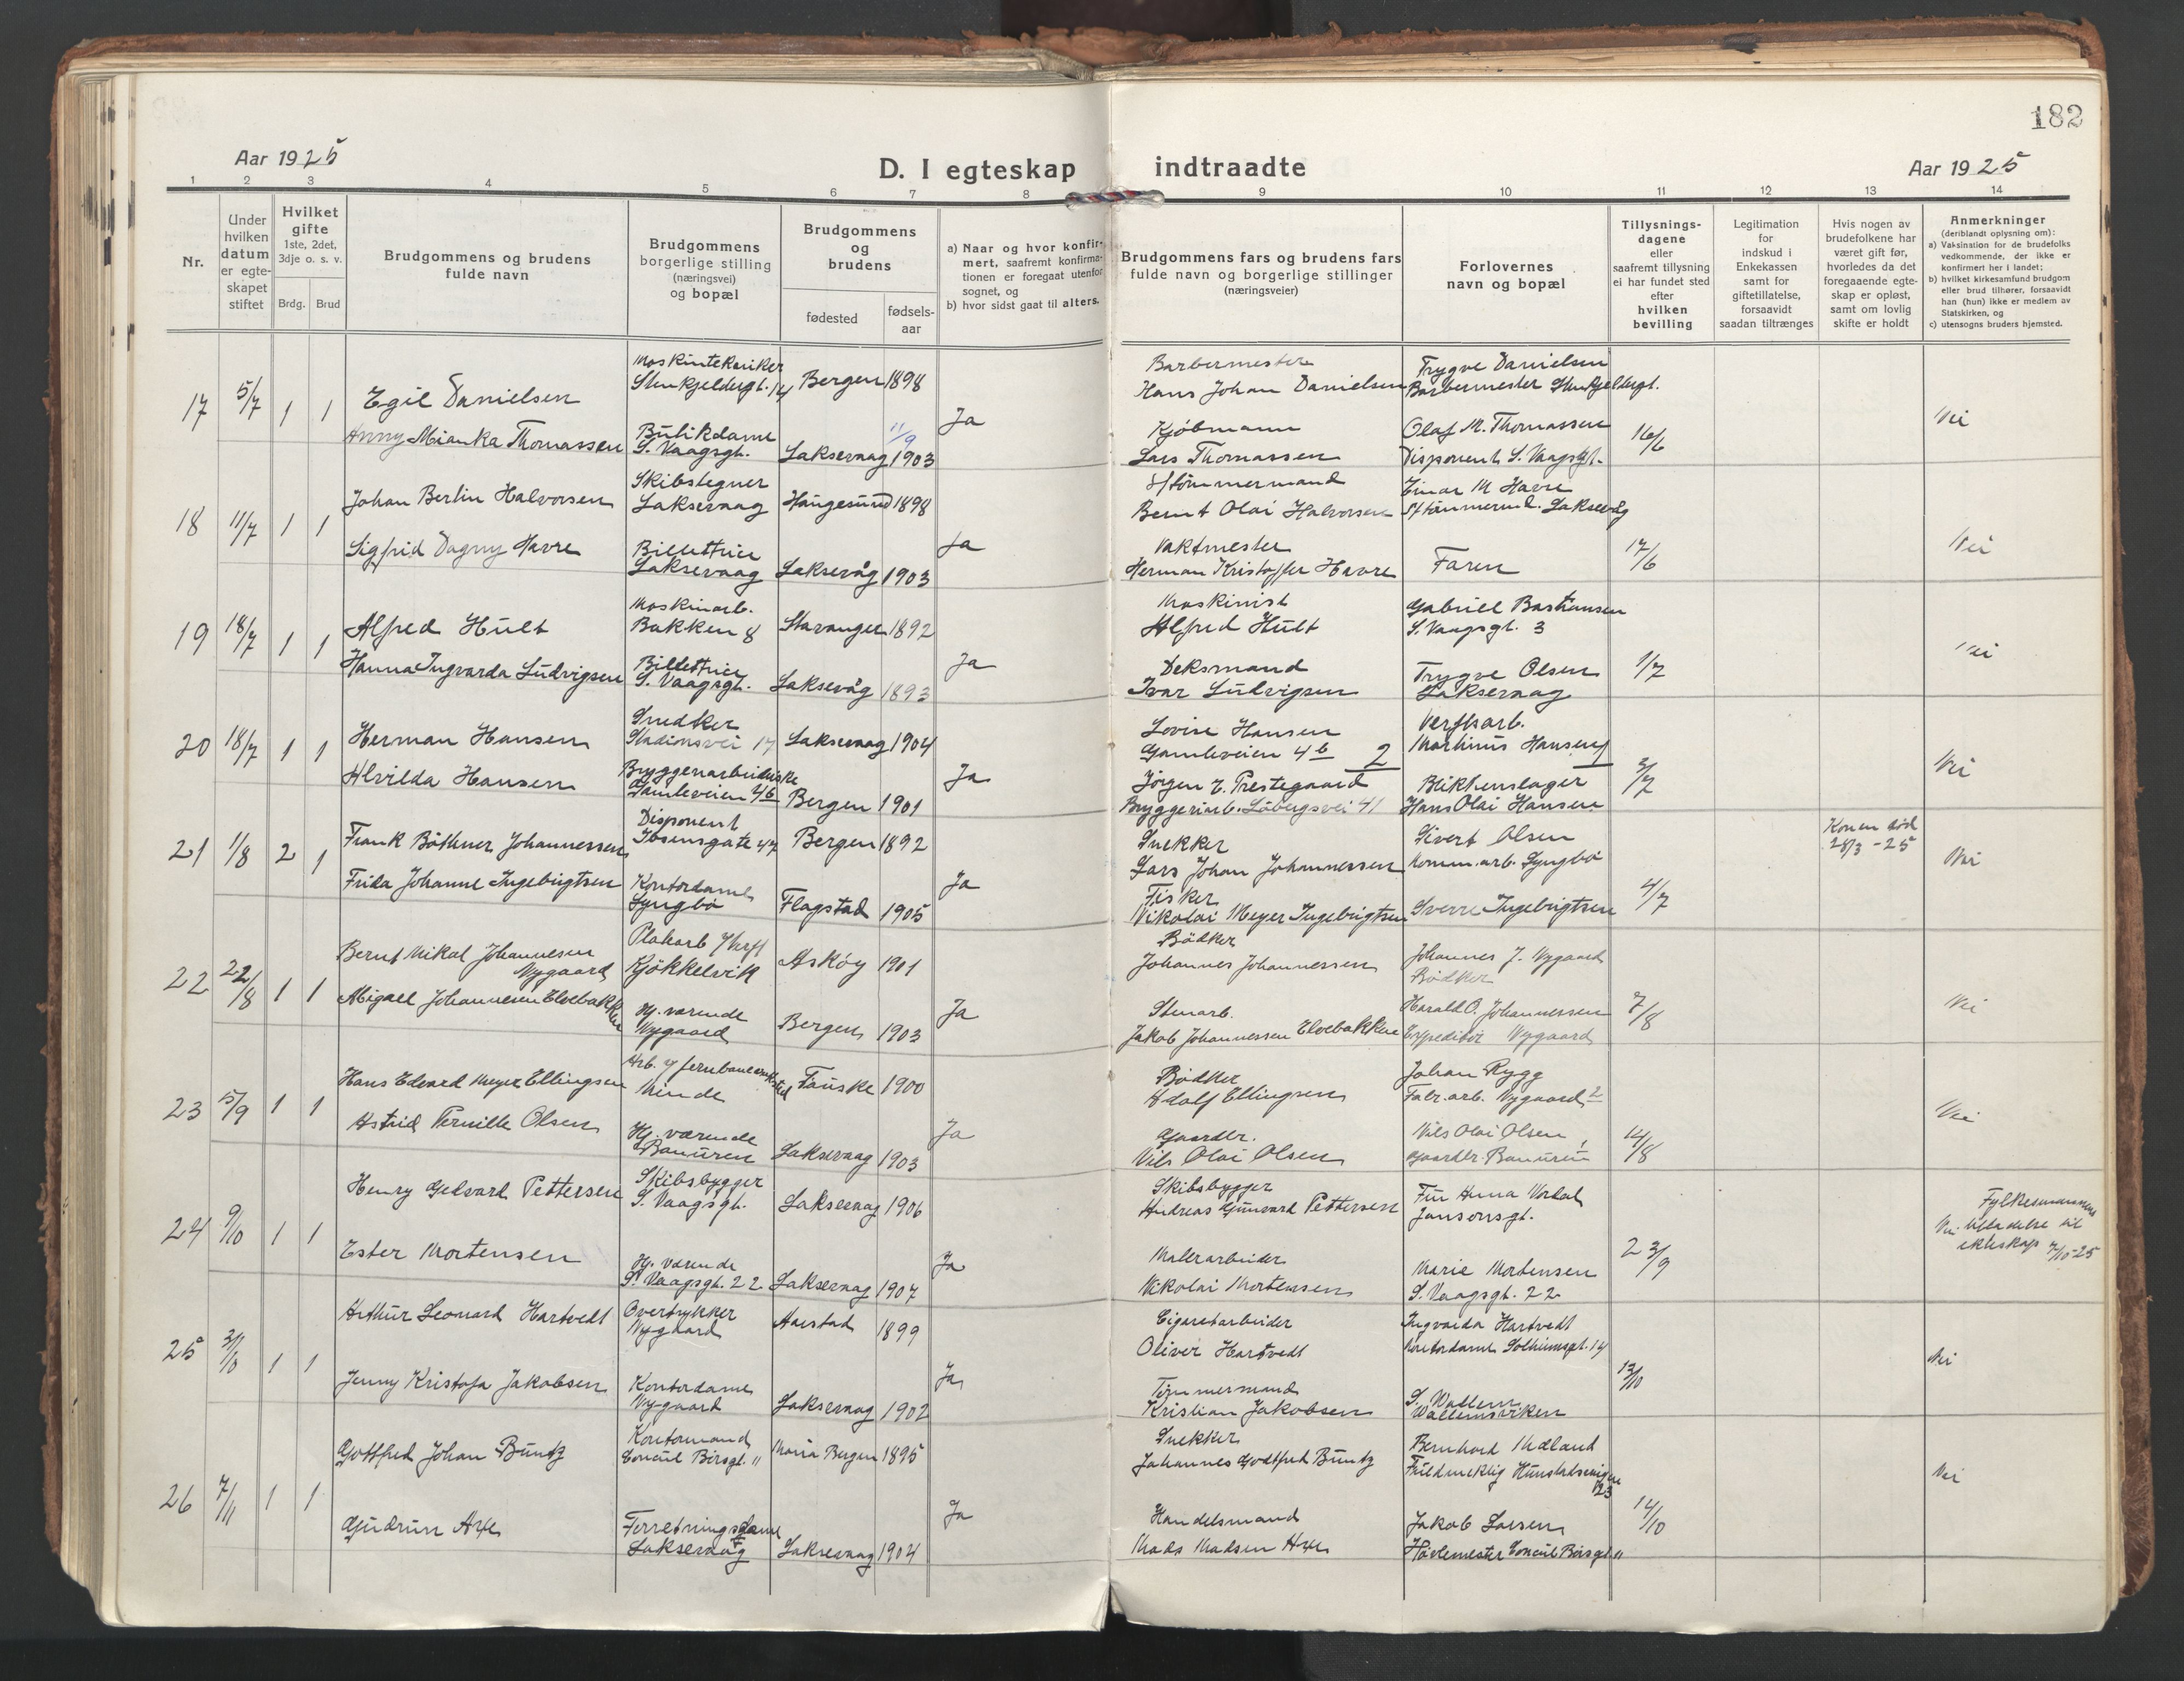 182
Aar 1925
D. I egteskap indtraadte
Aar 1925
1 2 3 4 5 6 7 8 9 10 11 12 13 14
Nr.
Under hvilken datum er egteskapet stiftet
Hvilket gifte 1ste, 2det, 3dje o. s. v.
Brdg. Brud
Brudgommens og brudens fulde navn
Brudgommens borgerlige stilling (næringsvei) og bopæl
Brudgommens og brudens
fødested
fødsels-aar
a) Naar og hvor konfirmert, saafremt konfirmationen er foregaat utenfor sognet, og
b) hvor sidst gaat til alters.
Brudgommens fars og brudens fars fulde navn og borgerlige stillinger (næringsveier)
Forlovernes navn og bopæl
Tillysnings-dagene eller saafremt tillysning ei har fundet sted efter hvilken bevilling
Legitimation for indskud i Enkekassen samt for giftetillatelse, forsaavidt saadan tiltrænges
Hvis nogen av brudefolkene har været gift før, hvorledes da det foregaaende egteskap er opløst, samt om lovlig skifte er holdt
Anmerkninger (deriblandt oplysning om):
a) Vaksination for de brudefolks vedkommende, der ikke er konfirmert her i landet;
b) hvilket kirkesamfund brudgom eller brud tilhører, forsaavidt han (hun) ikke er medlem av Statskirken, og
c) utensogns bruders hjemsted.
17 5/7 1 1
Egil Danielsen
Maskintekniker
Stenkjeldergt. 14
Bergen 1898
Barbermester
Hans Johan Danielsen
Trygve Danielsen
Barbermester Stenkjeldergt.
Anny Mianka Thomassen
Butikdame
S. Vaagsgt.
11/9
Laksevaag 1903
Ja
Kjøbmann
Lars Thomassen
Olaf M. Thomassen
Disponent S. Vaagsgt.
16/6
Nei
18 11/7 1 1
Johan Berlin Halvorsen
Skibstegner
Laksevaag
Haugesund 1898
Støm­mermand
Bernt Olai Halvorsen
Einar M Havre
Laksevåg
Sigfrid Dagny Havre
Billettrice
Laksevaag
Laksevåg 1903
Ja
Vaktmester
Herman Kristoffer Havre
Faren
17/6
Nei
19 18/7 1 1
Alfred Hult
Maskinarb.
Bakken 8
Stavanger 1892
Maskinist
Alfred Hult
Gabriel Bastiansen
S. Vaagsgt. 3
Hanna Ingvarda Ludvigsen
Billettrice
S. Vaagsgt.
Laksevåg 1893
Ja
Deksmand
Ivar Ludvigsen
Trygve Olsen
Laksevaag
1/7
Nei
20 18/7 1 1
Herman Hansen
Snedker
Stadionsvei 17
Laksevaag 1904
Lovise Hansen
Gamleveien 4b 2
Verftsarb.
Martinus Hansen 1
Alvilda Hansen
Bryggeriarbeiderske
Gamleveien 4b
Bergen 1901
Ja
Jörgen E. Prestegaard
Bryggeriarb. Löbergsvei 41
Blikkenslager
Hans Olai Hansen
3/7
Nei
21 1/8 2 1
Frank Böthner Johannessen
Disponent
Ibsensgate 47
Bergen 1892
Snekker
Lars Johan Johannessen
Sivert Olsen
Komm.arb. Lyngbö
Konen död
28/3 -25
Frida Johanne Ingebrigtsen
Kontordame
Lyngbö
Flagstad 1905
Ja
Fisker
Nikolai Meyer Ingebrigtsen
Sverre Ingebrigtsen
4/7
Nei
22 22/8 1 1
Bernt Mikal Johannesen
Nygaard
Kjökkelvik
Asköy 1901
Bödker
Johannes Johannessen
Johannes J. Nygaard
Bödker
Abigael Johannesen Elvebakken
Hj. værende
Nygaard
Bergen 1903
Ja
Stenarb.
Jakob Johannessen Elvebakken
Harald O. Johannessen
Expeditör Nygaard
7/8
Nei
23 5/9 1 1
Hans Edvard Meyer Ellingsen
Arb. v/ jernbaneverksted
Minde
Fauske 1900
Bödker
Adolf Ellingsen
Johan Rygg
Fabr.arb. Nygaard 2
Astrid Pernille Olsen
Hj. værende
Bauuren
Laksevaag 1903
Ja
Gaardbr.
Nils Olai Olsen
Nils Olai Olsen
Gaardbr. Bauuren
14/8
Nei
24 9/10 1 1
Henry Gedvard Pettersen
Skibsbygger
S. Vaagsgt.
Laksevaag 1906
Skibsbygger
Andreas Gunvard Pettersen
Fru Anna Vorlat
Jansonsgt.
Ester Mortensen
Hj. værende
S. Vaagsgt. 22
Laksevaag 1907
Ja
Malerarbeider
Nikolai Mortensen
Marie Mortensen
S. Vaagsgt. 22
23/9
Fylkesmannens
Nei. tilladelse til
ekteskap 7/10-25
25 31/10 1 1
Arthur Leonard Hartvedt
Overtrykker
Nygaard
Aarstad 1899
Cigaretarbeider
Oliver Hartvedt
Ingvarda Hartvedt
Kontordame Solheimsgt. 14
Jenny Kristofa Jakobsen
Kontordame
Nygaard
Laksevaag 1902
Ja
Tömmermand
Kristian Jakobsen
S. Wallem
Wallemsviken
13/10
Nei
26 7/11 1 1
Gottfred Johan Buntz
Kontormand
Concul Börsgt. 11
Maria Bergen 1895
Snekker
Johannes Godtfred Buntz
Bernhard Mæland
Fuldmektig
123
Gudrun Axe
Forretningsdame
Laksevaag
Laksevaag 1904
Ja
Handelsmand
Mads Madsen Axe
Jakob Larsen
Hövlemester Concul Börsgt. 11
14/10
Nei